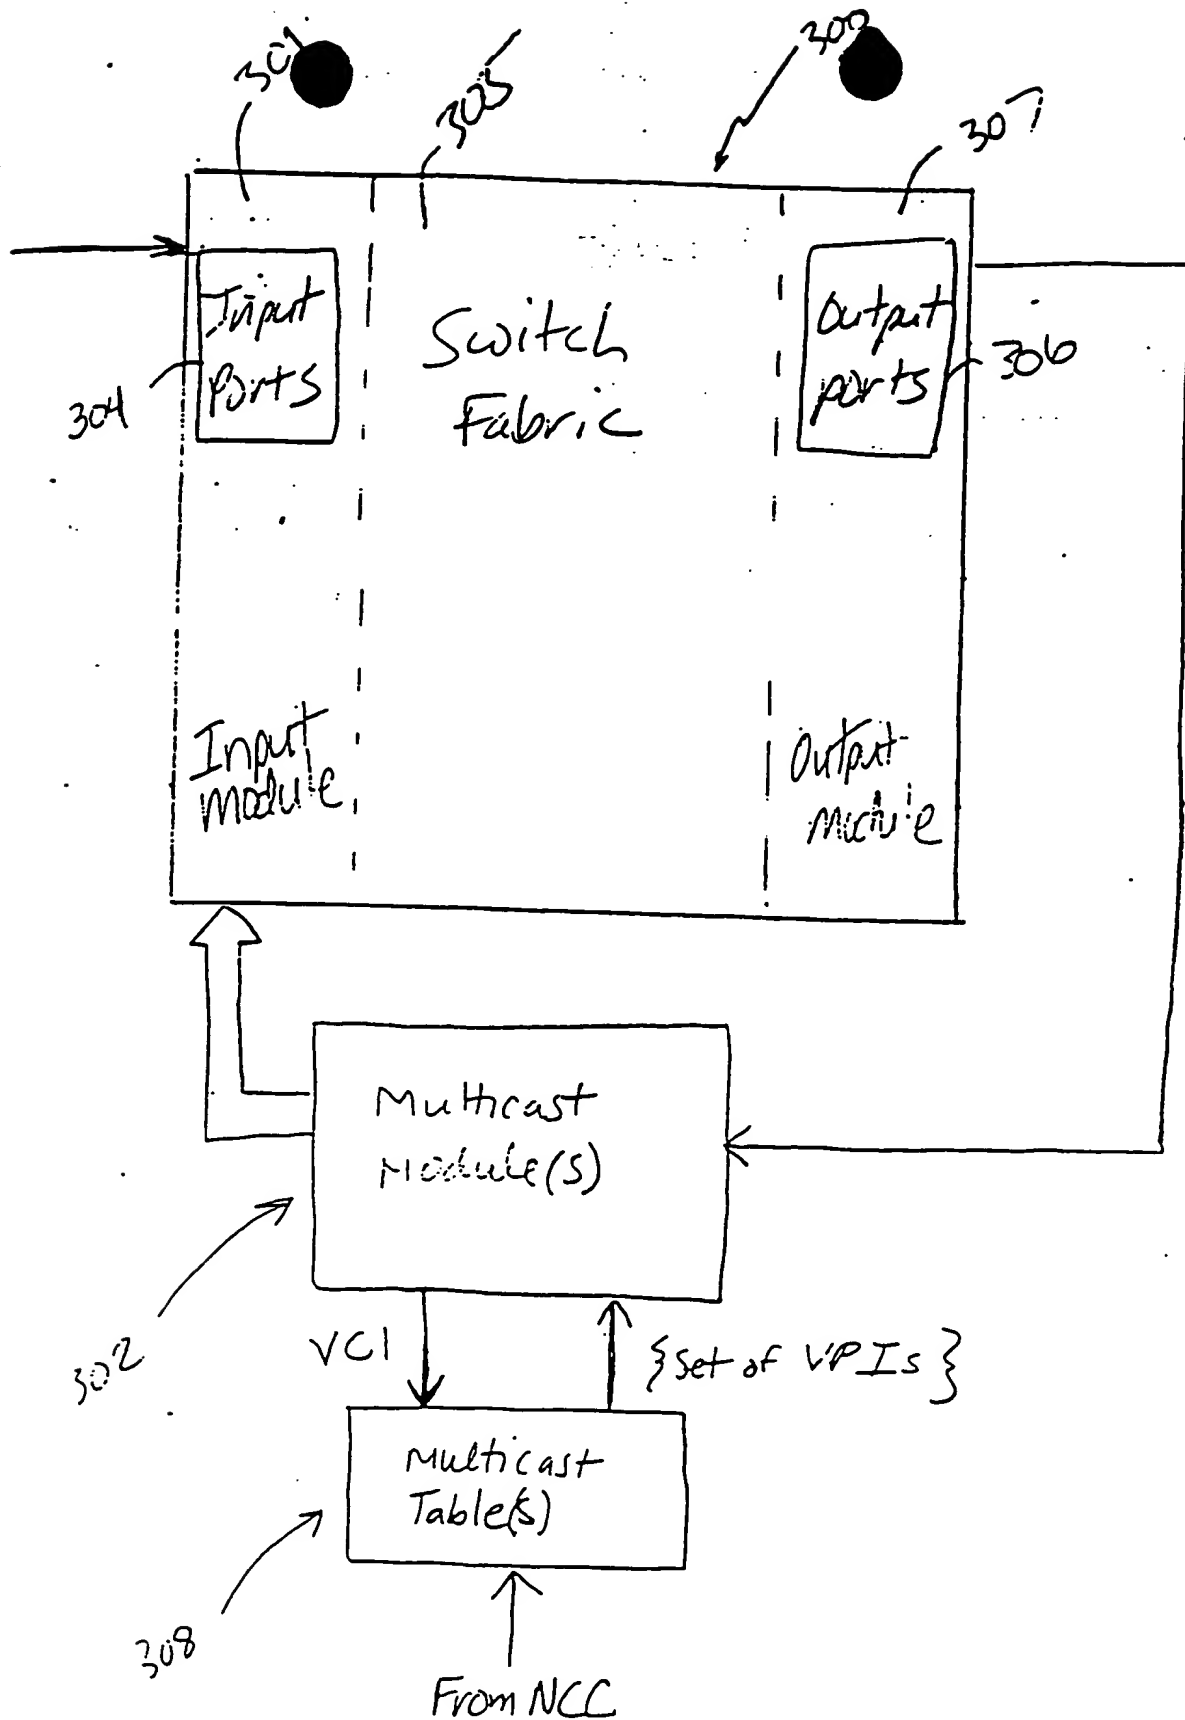 301
305
300
307
Input
Ports
Switch
Fabric
Output
ports
304
306
Input
module
Output
module
Multicast
Module(s)
302
VCI
{Set of VPIs}
Multicast
Table(s)
308
From NCC